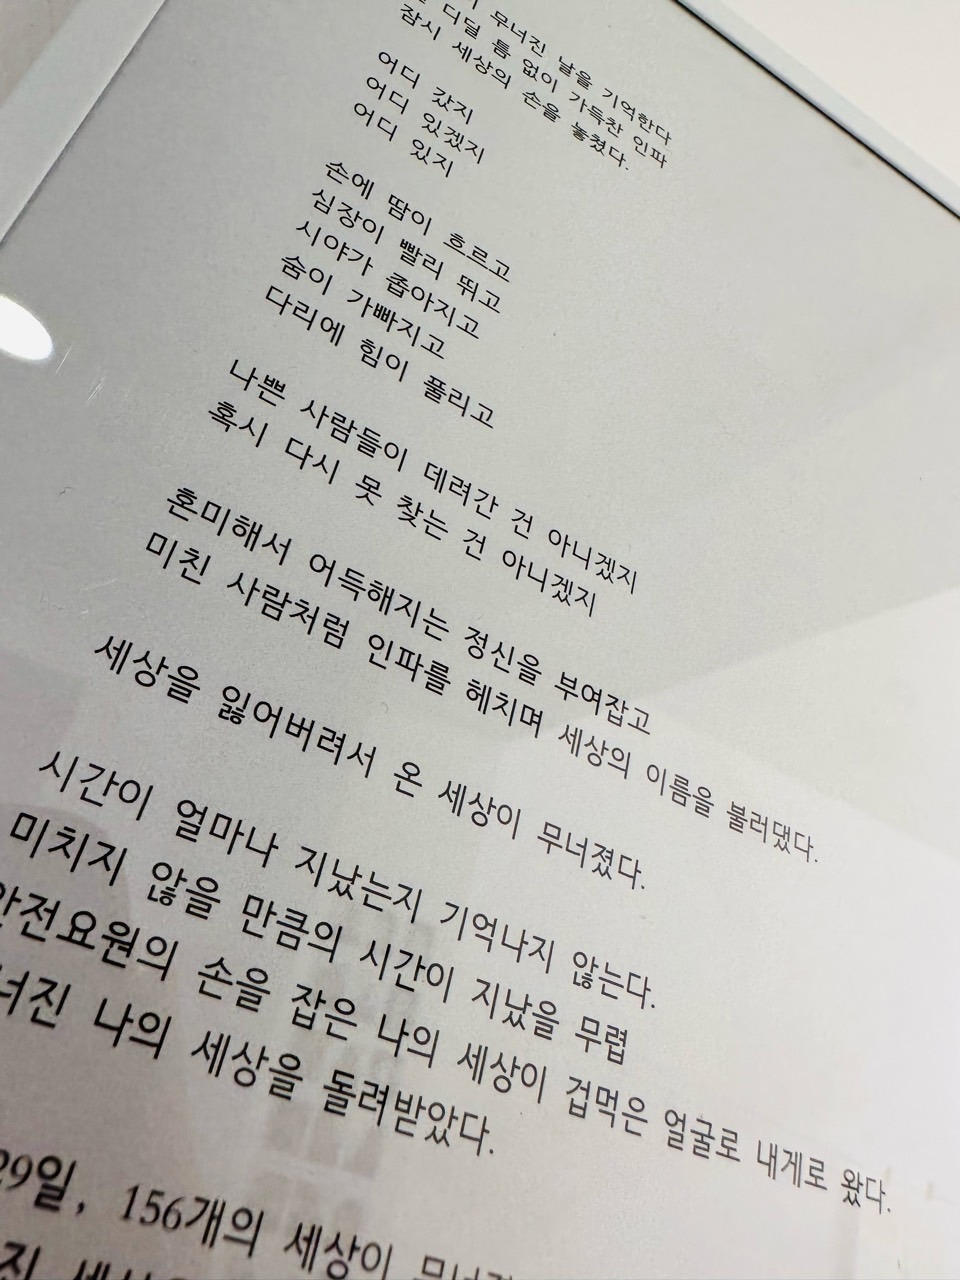 무너진 날을 기억한다
디딜 틈 없이 가득찬 인파
잠시 세상의 손을 놓쳤다.
어디 갔지
어디 있겠지
어디 있지
손에 땀이 흐르고
심장이 빨리 뛰고
시야가 좁아지고
숨이 가빠지고
다리에 힘이 풀리고
나쁜 사람들이 데려간 건 아니겠지
혹시 다시 못 찾는 건 아니겠지
혼미해서 어득해지는 정신을 부여잡고
미친 사람처럼 인파를 헤치며 세상의 이름을 불러댔다.
세상을 잃어버려서 온 세상이 무너졌다.
시간이 얼마나 지났는지 기억나지 않는다.
미치지 않을 만큼의 시간이 지났을 무렵
안전요원의 손을 잡은 나의 세상이 겁먹은 얼굴로 내게로 왔다.
너진 나의 세상을 돌려받았다.
29일, 156개의 세상이